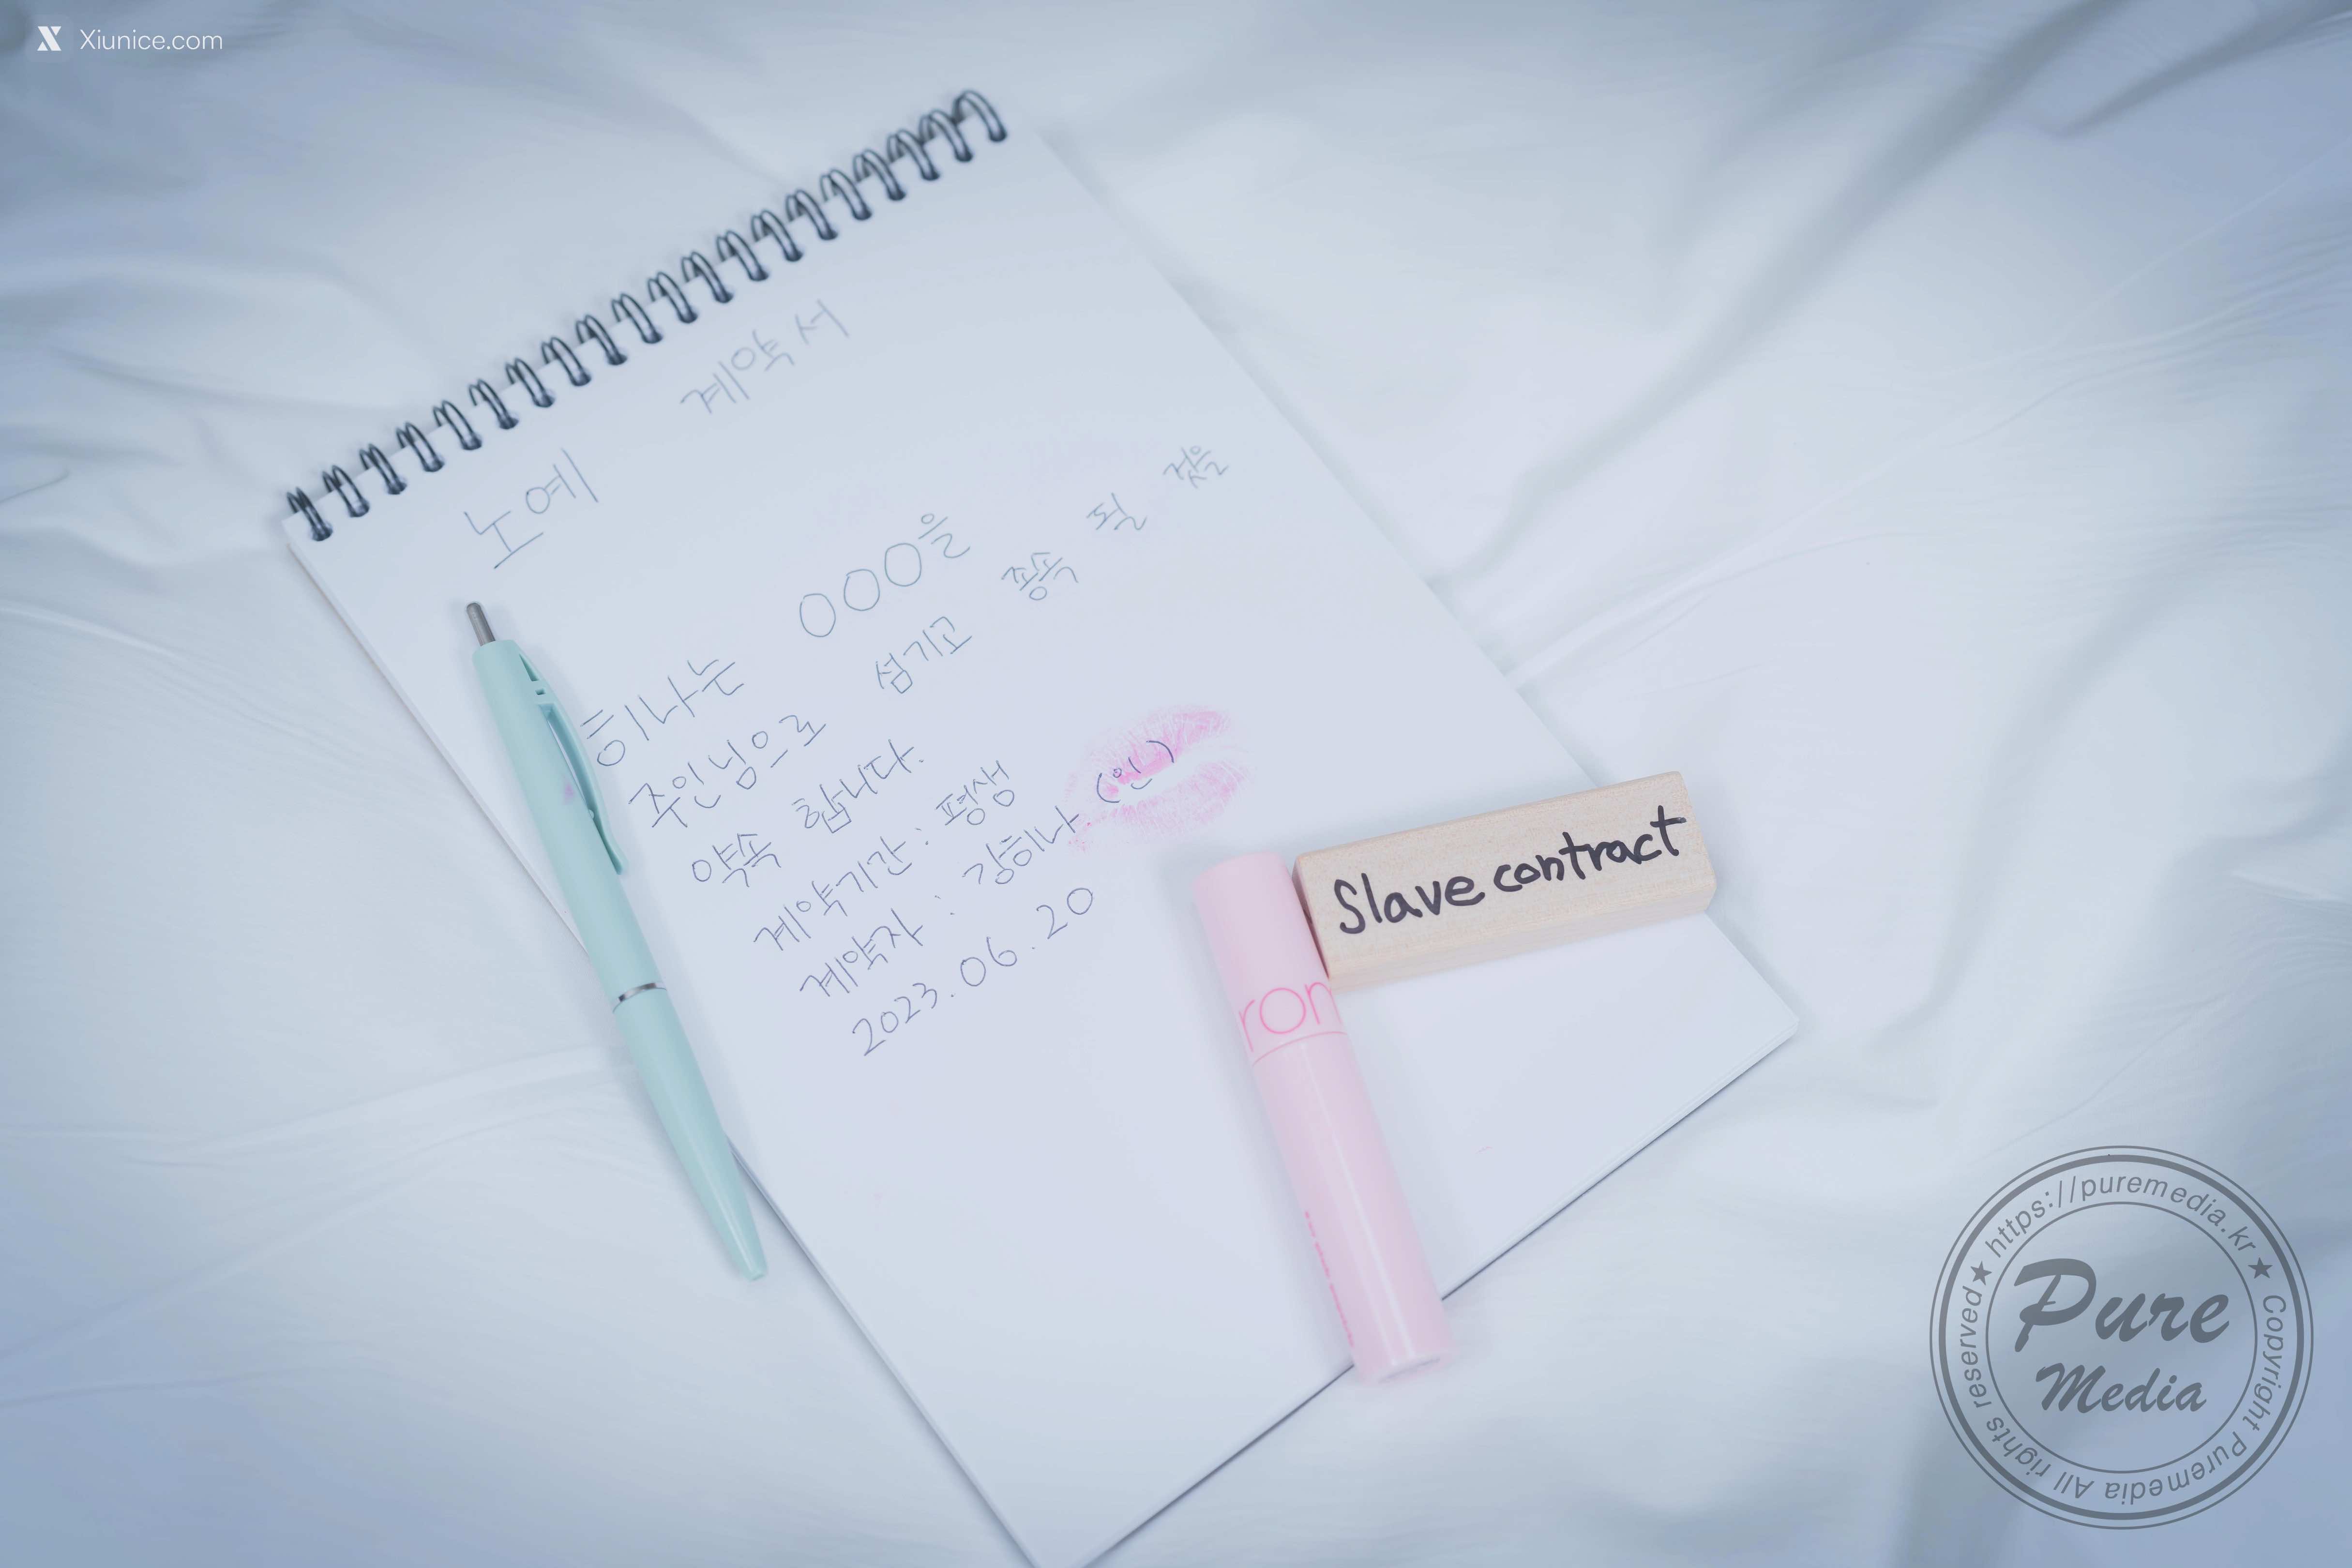 Xiunice.com
노예 계약서
히나는 OOO을
주인님으로 섬기고 종속 될 것을
약속 합니다.
계약기간 : 평생
계약자 : 강히나 (인)
2023.06.20
Slave contract
rom
https://puremedia.kr ★ Copyright Puremedia All rights reserved ★
Pure
Media